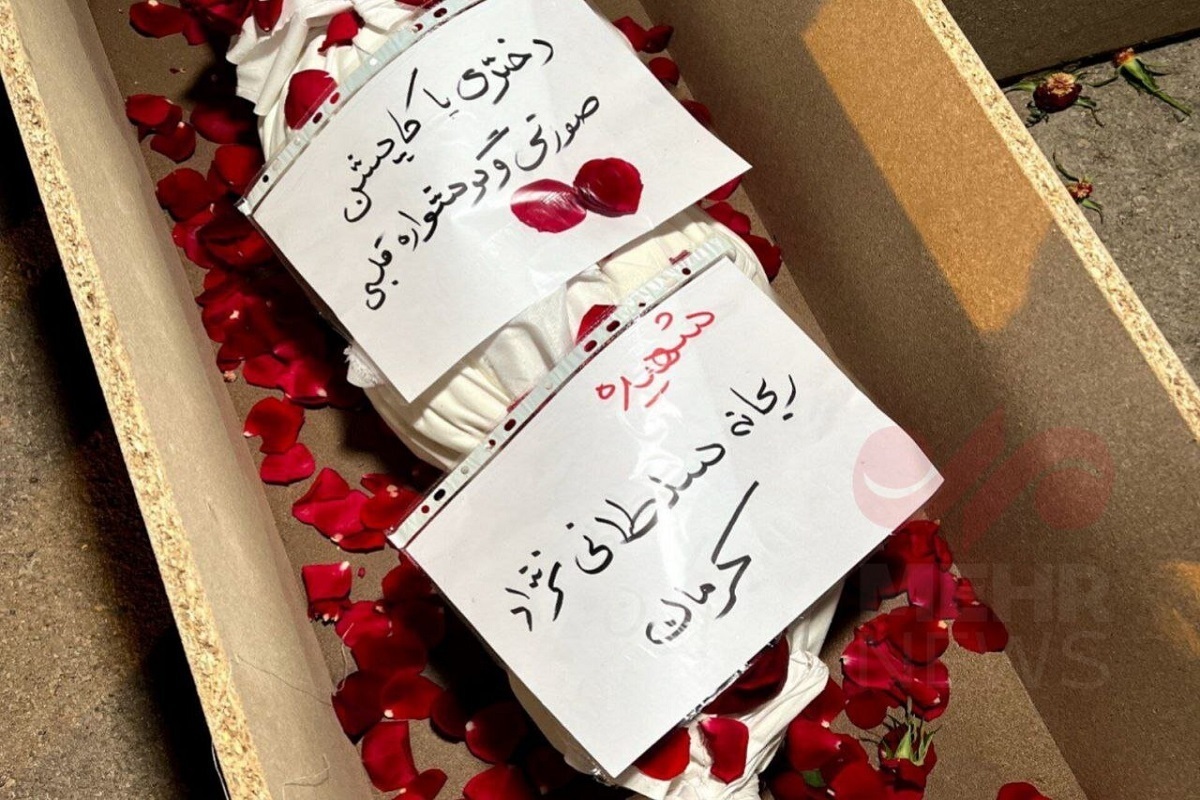 دختری با کاپشن
صورتی و گوشواره قلبی
شهیده
ریحانه سلطانی نژاد
کرمان
MEHR
NEWS